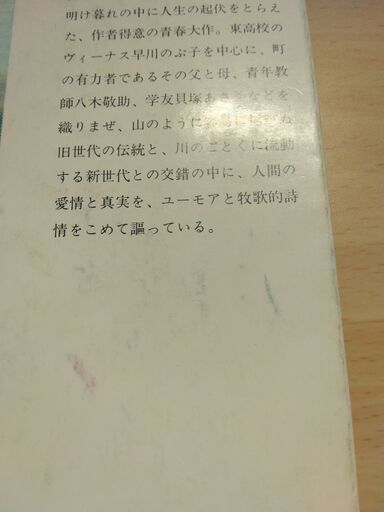 明け暮れの中に人生の起伏をとらえ
た、作者得意の青春大作。東高校の
ヴィーナス早川のぶ子を中心に、町
の有力者であるその父と母、青年教
師八木敬助、学友貝塚あさ などを
織りまぜ、山のように ぬ
旧世代の伝統と、川のごとくに流動
する新世代との交錯の中に、人間の
愛情と真実を、ユーモアと牧歌的詩
情をこめて謳っている。